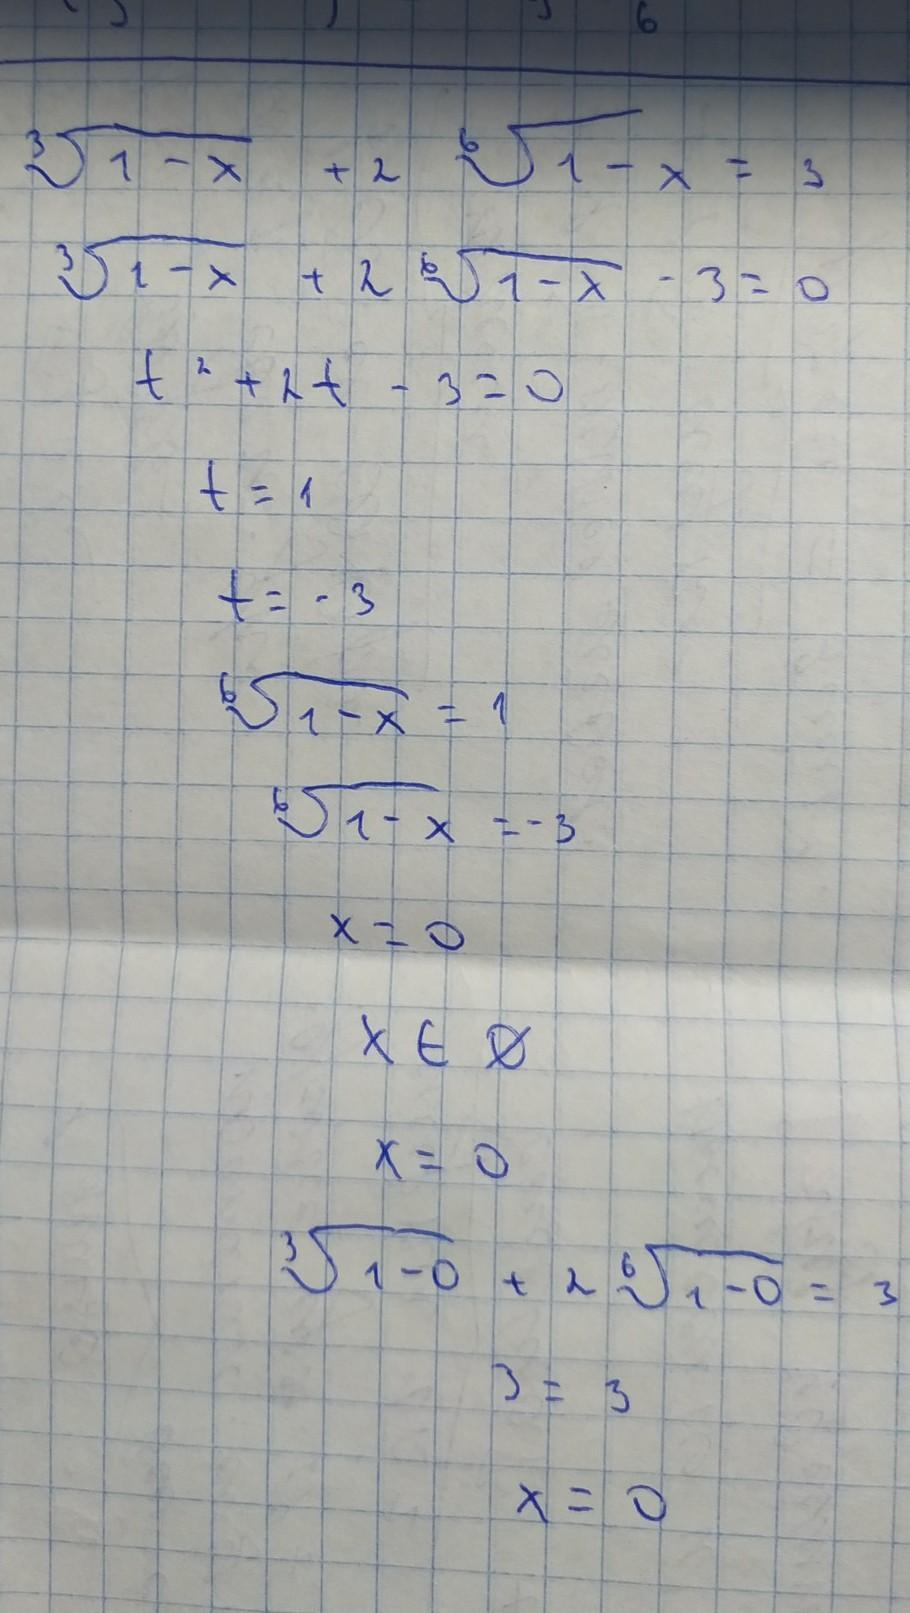 ∛(1-x) + 2 ⁶√(1-x) = 3
∛(1-x) + 2 ⁶√(1-x) - 3 = 0
t² + 2t - 3 = 0
t = 1
t = -3
⁶√(1-x) = 1
⁶√(1-x) = -3
x = 0
x ∈ ∅
x = 0
∛(1-0) + 2 ⁶√(1-0) = 3
3 = 3
x = 0